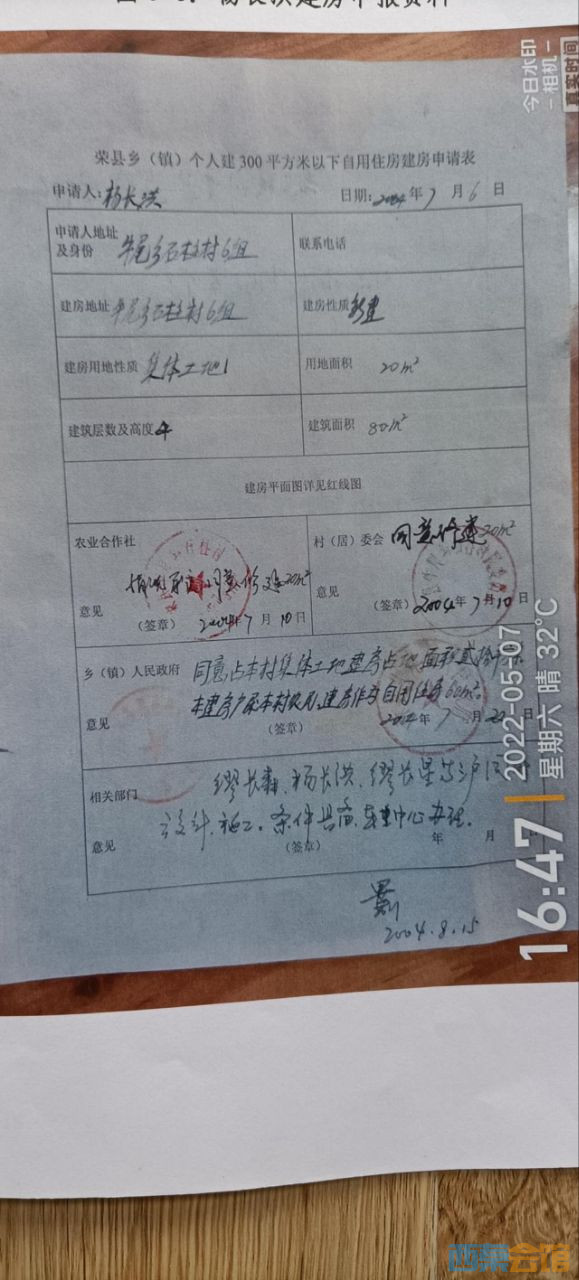 荣县乡（镇）个人建300平方米以下自用住房建房申请表
申请人：杨长洪 日期：2004年7月6日
申请人地址及身份 牛尾乡石柱村6组 联系电话
建房地址 牛尾乡石柱村6组 建房性质 新建
建房用地性质 集体土地 用地面积 20m²
建筑层数及高度 4 建筑面积 80m²
建房平面图详见红线图
农业合作社 村（居）委会 同意修建20m²
同意修建20m²
意见 意见
（签章） 2004年7月10日 （签章） 2004年7月10日
乡（镇）人民政府 同意占本村集体土地建房占地面积贰拾
本建房户系本村农民，建房作为自用住房
意见 （签章） 2004年7月
相关部门 缪长森、杨长洪、缪长星
设计、施工。条件具备，中心办理。
意见 （签章） 年 月
2004.8.15
今日水印
-相机-
真实时间
16:47
2022-05-07
星期六 晴 32℃